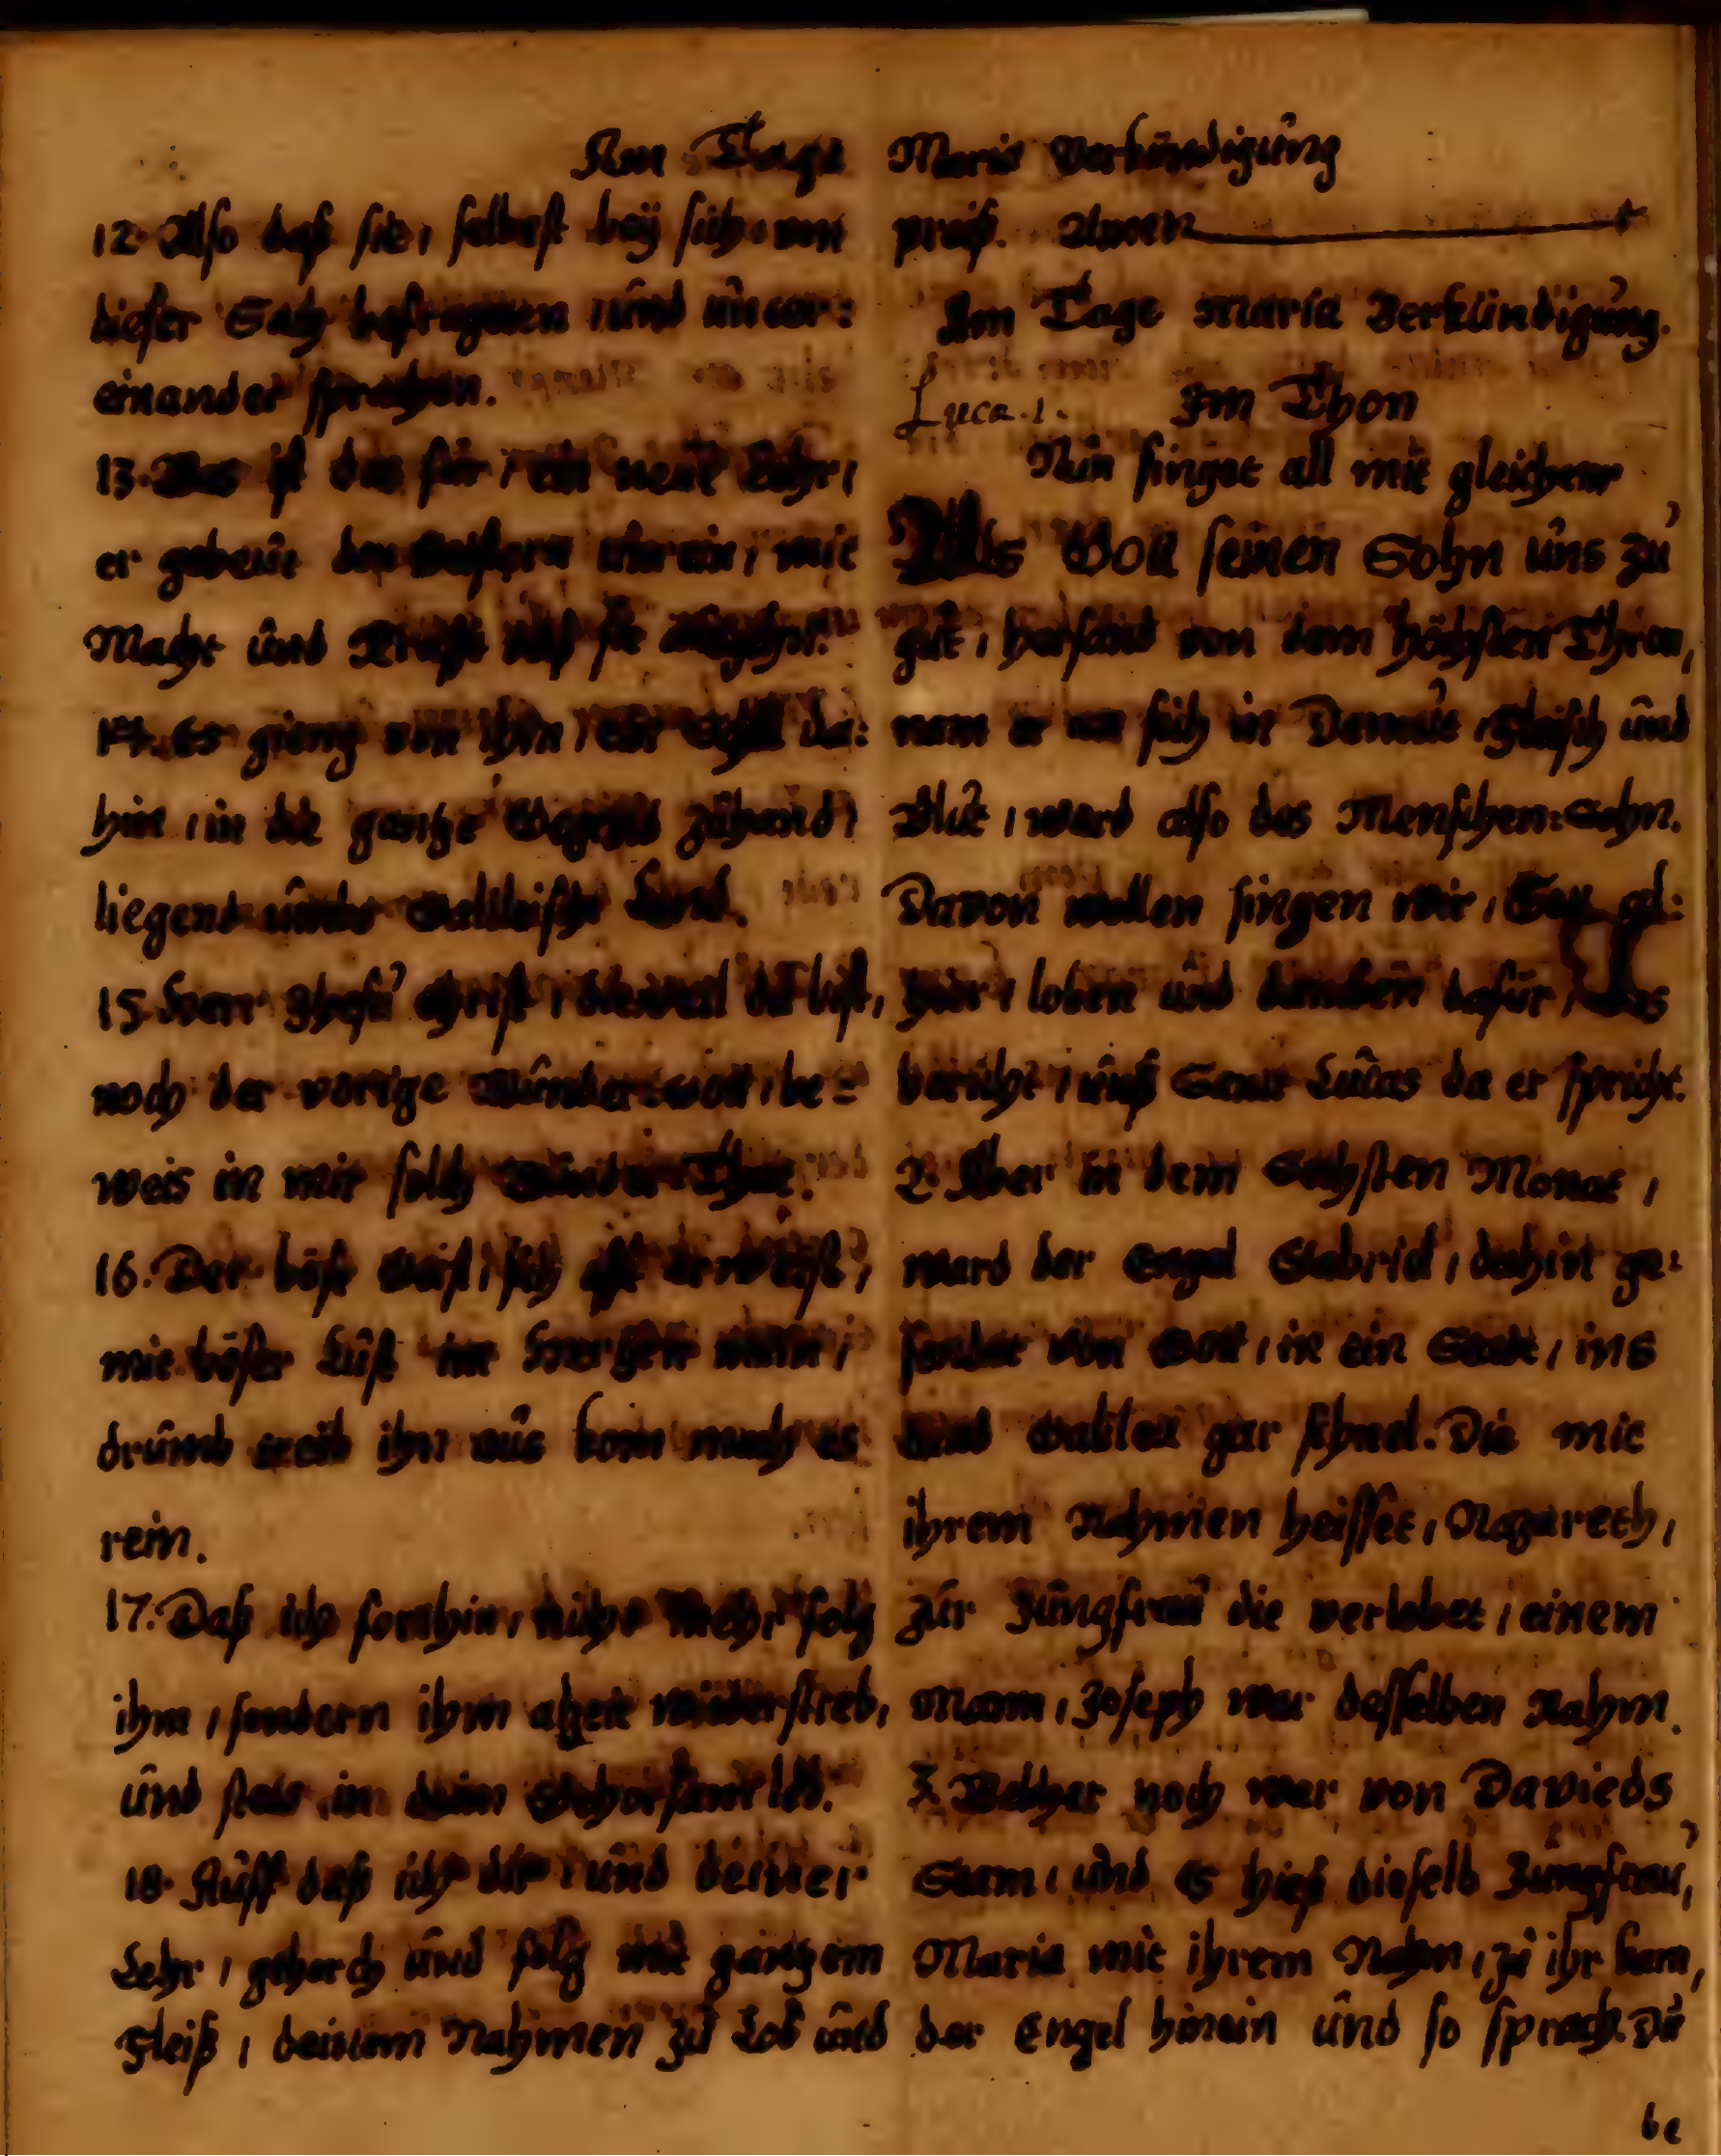 Am Tage Mariä Verkündigung
12. Also daß sie, selbest beÿ sich, von
dieser Sach befrageten, und unter:
einander sprachen.
13. Was ist das für, ein neue Lehr,
er gebeüt den Geistern unrein, mit
Macht und Krafft daß sie
14. Es gieng von ihm, ein Schall da:
hin, in die gantze Gegend zuhand,
liegend umbs Galileische Land.
15. Herr Jhesu Christ, dieweil du bist,
noch der vorige Wunder-Gott, be=
weis in mir solch Wunder-That.
16. Der böse Geist, sich oft erweist,
mit böser Lust im Hertzen mein,
drumb treib ihn aus kom mach es
rein.
17. Daß ich forthin, nicht mehr folg
ihm, sondern ihm alzeit widerstreb,
und stets in deim Gehorsam leb.
18. Auff daß ich dir, und deiner
Lehr, gehorch und folg mit gantzem
Fleiß, deinem Nahmen zu Lob und
preiß. Amen
Am Tage Maria Verkündigung.
Luca. 1. Im Thon
Nun singet all mit gleichem
Als Gott seinen Sohn uns zu
gut, hersand von dem höchsten Thron,
nam er an sich in Demut, Fleisch und
Blut, ward also des Menschen-Sohn.
Davon wollen singen wir, Gott al:
hier, loben und dancken dafür, das
bericht, unß Sanct Lucas da er spricht.
2. Aber in dem Sechsten Monat,
ward der Engel Gabriel, dahin ge:
sendet von Gott, in ein Stadt, ins
Land Galilea gar schnel. Die mit
ihrem Nahmen heisset, Nazareth,
zur Jungfrau die verlobet, einem
Mann, Joseph war desselben Nahm.
3. Welcher noch war von Davieds
Stam, und es hieß dieselb Jungfrau,
Maria mit ihrem Nahm, zu ihr kam,
der Engel hinein und so sprach. Du
be